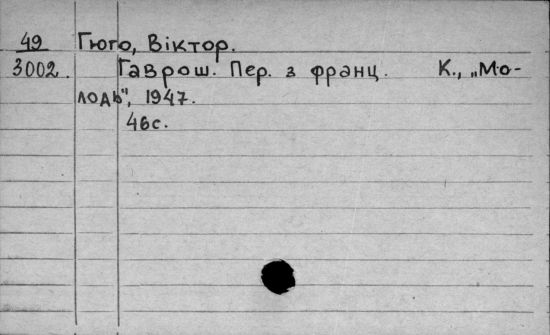 49 Гюго, Віктор.
3002. Гаврош. Пер. з франц. К., „Мо-
лодь", 1947.
46с.